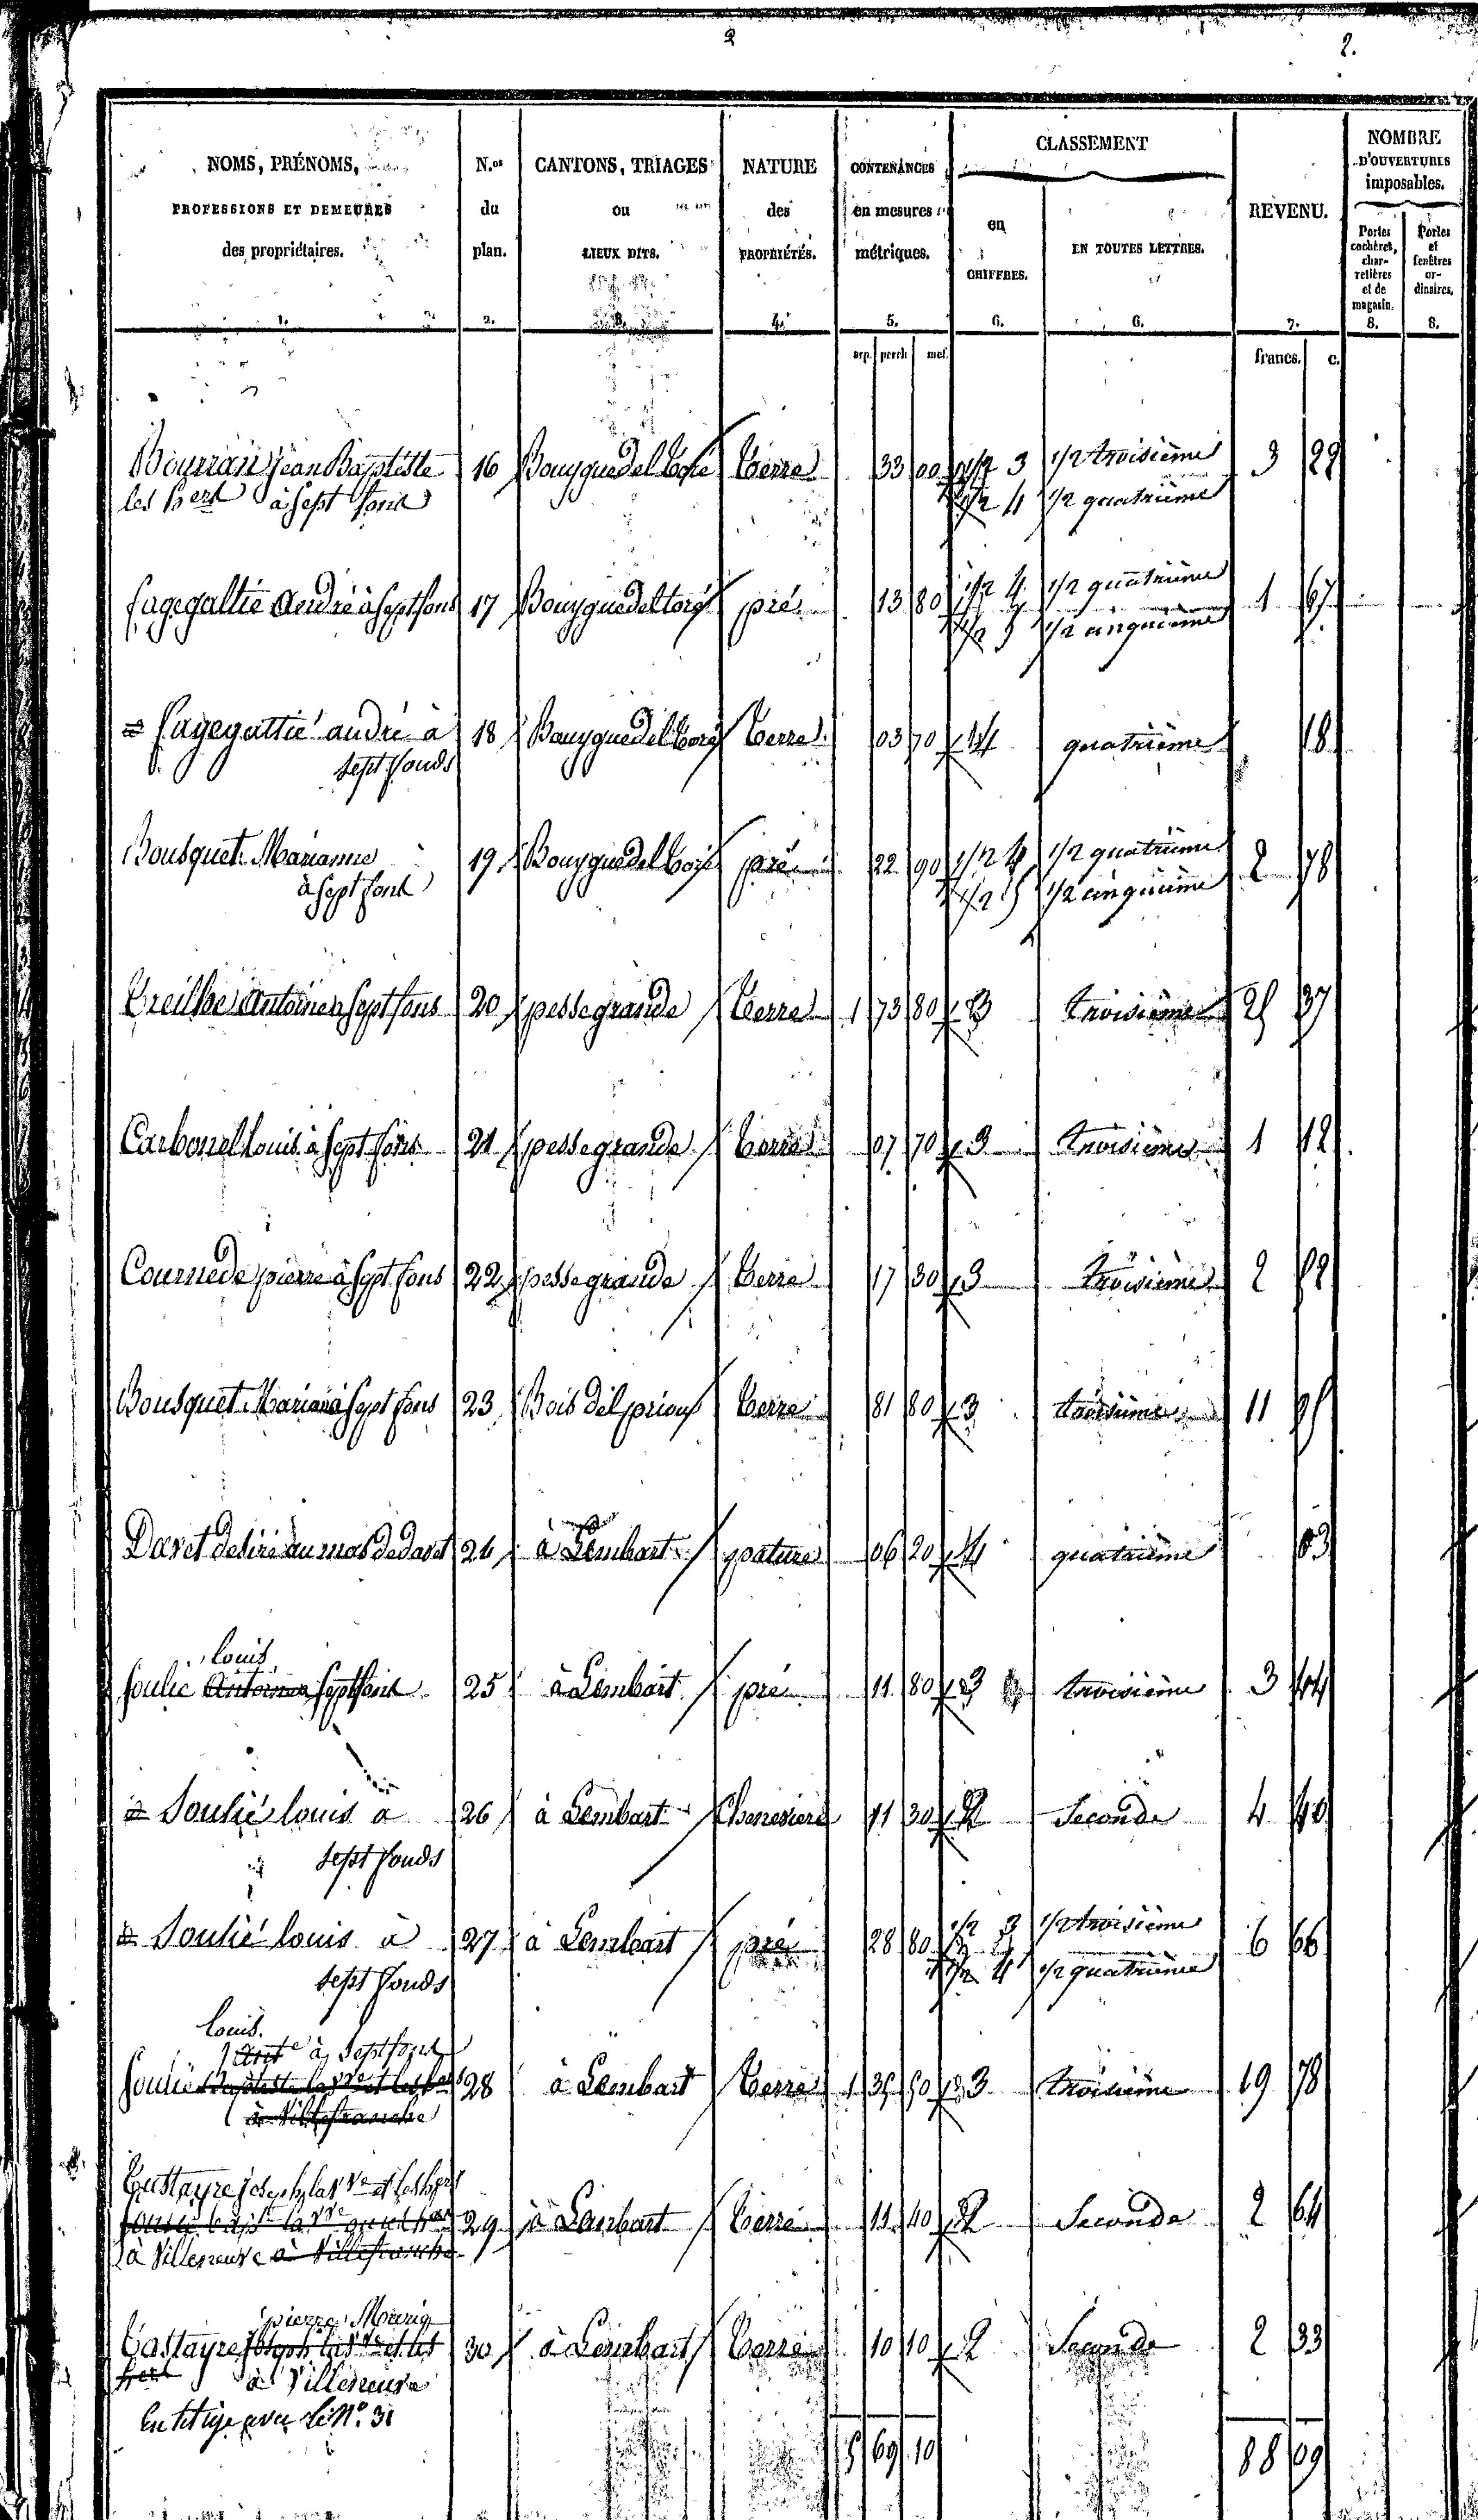 2.
NOMS, PRÉNOMS,
PROFESSIONS ET DEMEURES
des propriétaires.
1.
N.os
du
plan.
2.
CANTONS, TRIAGES
ou
LIEUX DITS.
3.
NATURE
des
PROPRIÉTÉS.
4.
CONTENANCES
en mesures
métriques.
5.
CLASSEMENT
en
CHIFFRES.
6.
EN TOUTES LETTRES.
6.
REVENU.
7.
NOMBRE
D'OUVERTURES
imposables.
Portes
cochères,
char-
retières
et de
magasin.
8.
Portes
et
fenêtres
or-
dinaires.
8.
arp. perch. met.
francs. c.
Bourran Jean Baptiste 16 Bouygue del Terre 33 00 1/2 3 1/2 troisième 3 29
les à Sept fons 1/2 4 1/2 quatrième
fagegaltié André à Septfons 17 Bouygue del pré 13 80 1/2 4 1/2 quatrième 1 67
1/2 5 1/2 cinquième
= fagegaltié andré à 18 Bouygue del terre 03 70 4 quatrième 18
sept fonds
Bousquet Marianne 19 Bouygue del pré 22 90 1/2 4 1/2 quatrième 2 78
à Sept fons 1/2 5 1/2 cinquième
Treilhe Antoine à Sept fons 20 pesse grande terre 1 73 80 3 troisième 25 37
Carbonel louis à Sept fons 21 pesse grande terre 07 70 3 troisième 1 12
Cournede pierre à Sept fons 22 pesse grande terre 17 30 3 troisième 2 52
Bousquet Marian à Sept fons 23 Bois del prioux terre 81 80 3 troisième 11 95
Davet au mas de davet 24 à Lembart pature 06 20 4 quatrième 03
louis
Soulie Antoine à Septfons 25 à Lembart pré 11 80 3 troisième 3 44
= Soulié louis à 26 à Lembart Cheneviere 11 30 2 Seconde 4 40
sept fonds
= Soulié louis à 27 à Lembart pré 28 80 1/2 3 1/2 troisième 6 66
sept fonds 1/2 4 1/2 quatrième
louis.
à Septfons
Soulié Baptiste la Ve et les 28 à Lembart terre 1 35 50 3 troisième 19 78
à Villefranche
Castayre Joseph la Ve et les
29 à Lembart terre 11 40 2 Seconde 2 64
à Villeneuve à Villefranche
pierre
Castayre Joseph la Ve et les 30 à Lembart terre 10 10 2 Seconde 2 33
à Villeneuve
En litige avec le No. 31
5 69 10 88 09